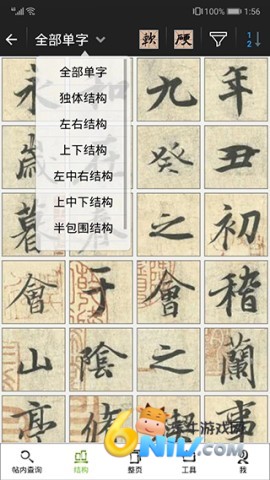 100% 1:56
全部单字
软 硬
1
2
全部单字
独体结构
左右结构
上下结构
左中右结构
上中下结构
半包围结构
永 和 九 年
歲 在 癸 丑
暮 春 之 初
會 于 會 稽
山 陰 之 蘭
亭 脩 禊 事
牛游戏网
帖内查询 结构 整页 工具 我